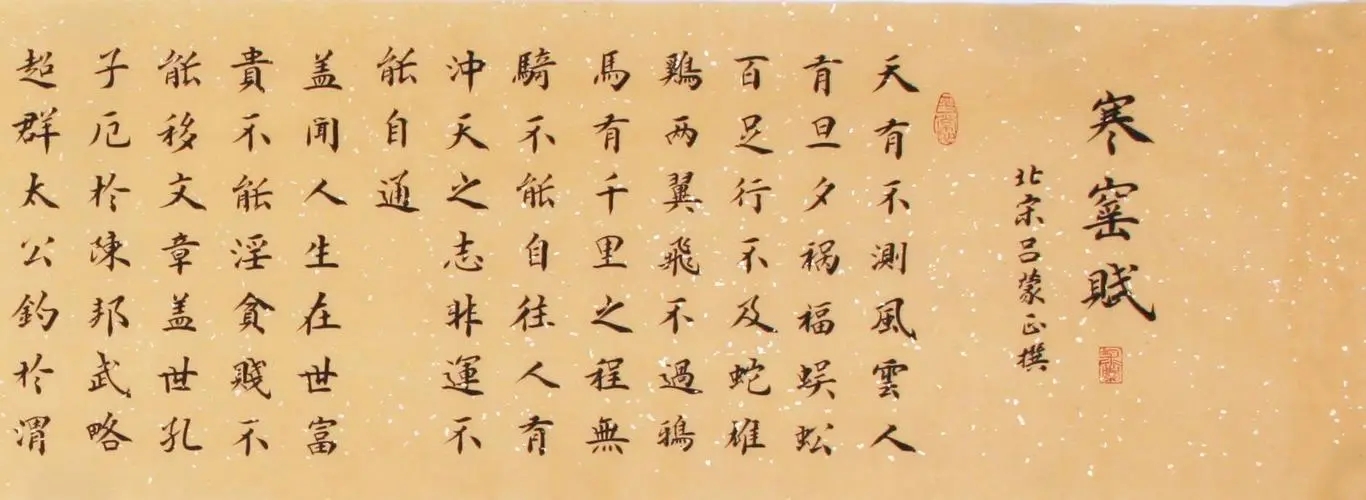 寒窰賦
北宋吕蒙正撰
天有不測風雲人
有旦夕祸福蜈蚣
百足行不及蛇雄
鷄两翼飛不過鴉
馬有千里之程無
騎不能自往人有
沖天之志非運不
能自通
盖聞人生在世富
貴不能淫貧賤不
能移文章盖世孔
子厄於陳邦武略
超群太公釣於渭